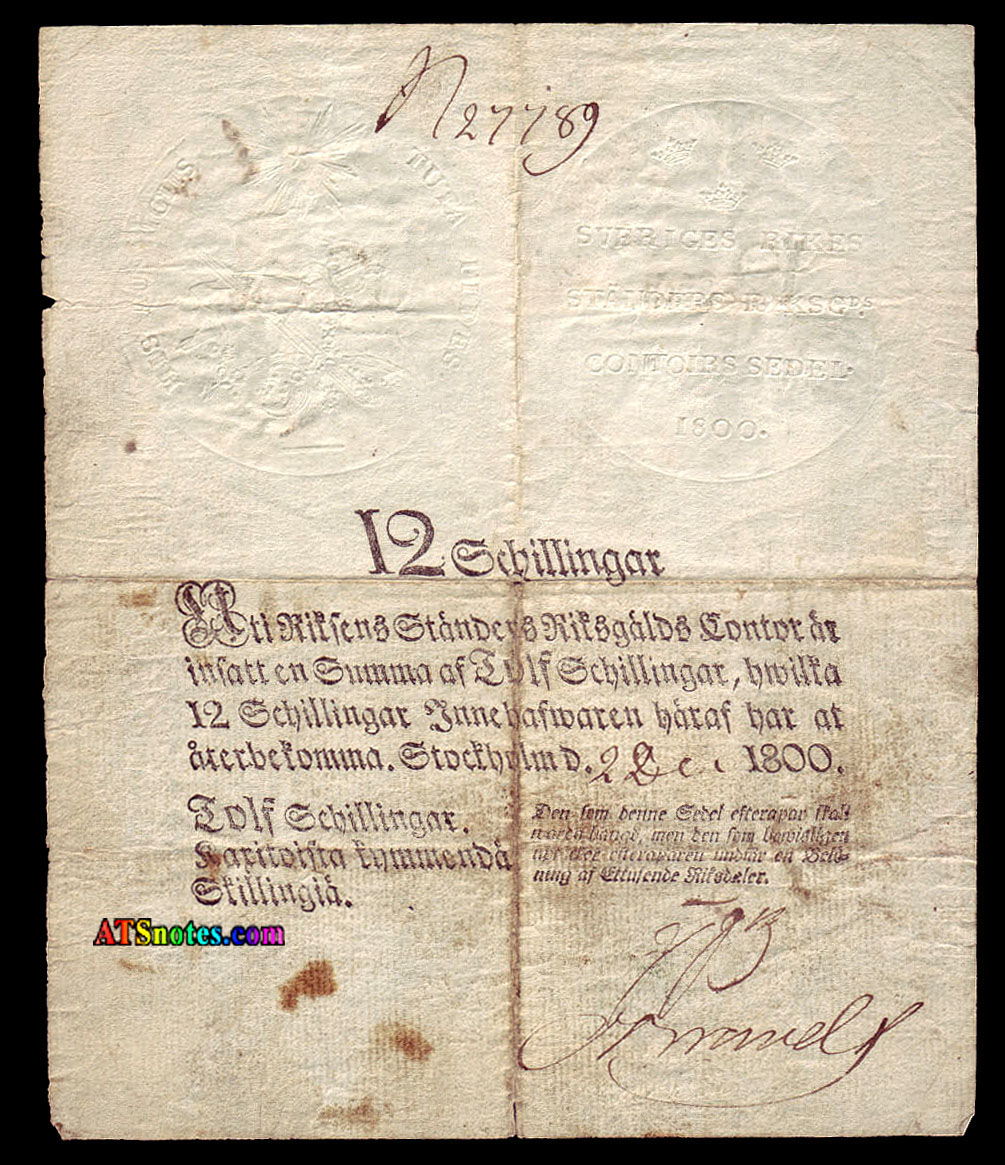 N 27789
HIS RUI TUTA FIDES
SVERIGES RIKES
STÄNDERS RIKSGDS.
CONTOIRS SEDEL.
1800.
12 Schillingar
Uti Riksens Ständers Riksgälds Contor är
insatt en Summa af Tolf Schillingar, hwilka
12 Schillingar Innehafwaren häraf har at
återbekomma. Stockholm d. 2 Dec. 1800.
Tolf Schillingar.
Kaxitoista kymmendä
Skillingiä.
Den som denne Sedel efterapar skall
warda hängd, men den som bewisligen
uptäcker efteraparen undfår en Belö-
ning af Ettusende Riksdaler.
ATSnotes.com